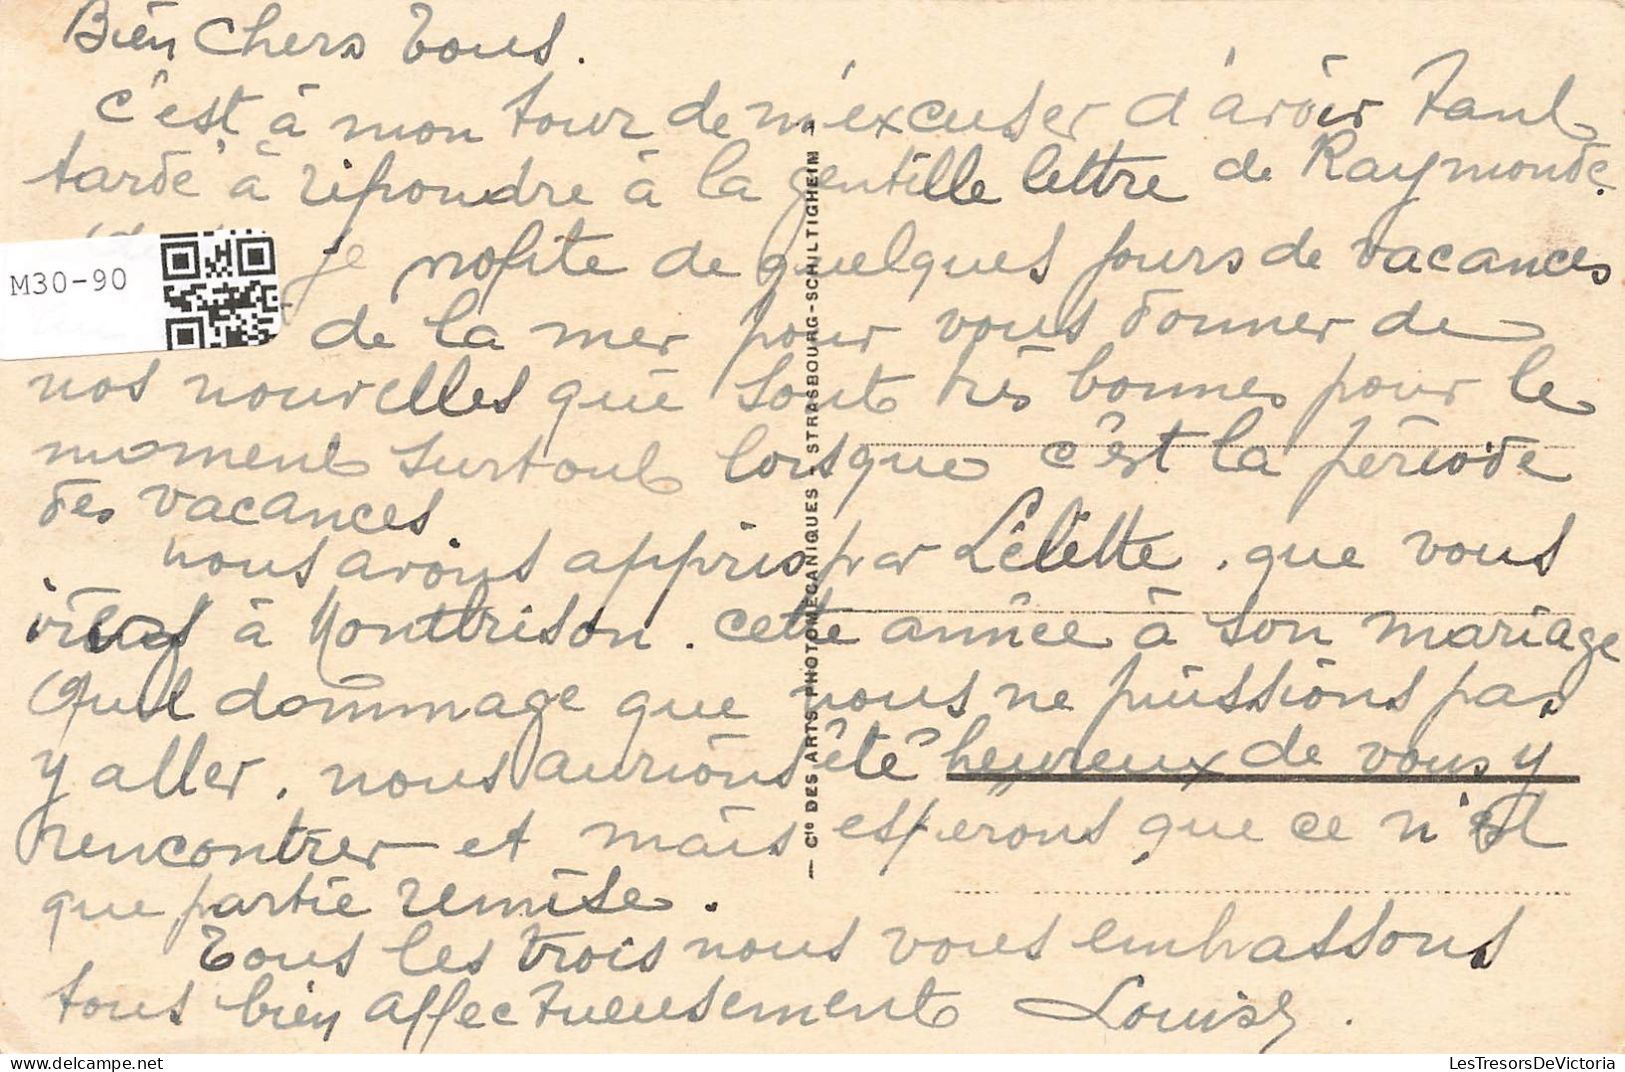 Bien chers tous.
c'est à mon tour de m'excuser d'avoir tant
tardé à répondre à la gentille lettre de Raymonde.
je profite de quelques jours de vacances
de la mer pour vous donner de
nos nouvelles qui sont très bonnes pour le
moment surtout lorsque c'est la période
des vacances
nous avons appris par Lélette. que vous
à Montbrison. cette année à son mariage
Quel dommage que nous ne puissions pas
y aller. nous aurions été heureux de vous y
rencontrer et mais espérons que ce n'est
que partie remise.
Tous les trois nous vous embrassons
tous bien affectueusement Louise.
M30-90
— Cie DES ARTS PHOTOMECANIQUES - STRASBOURG-SCHILTIGHEIM —
LesTresorsDeVictoria